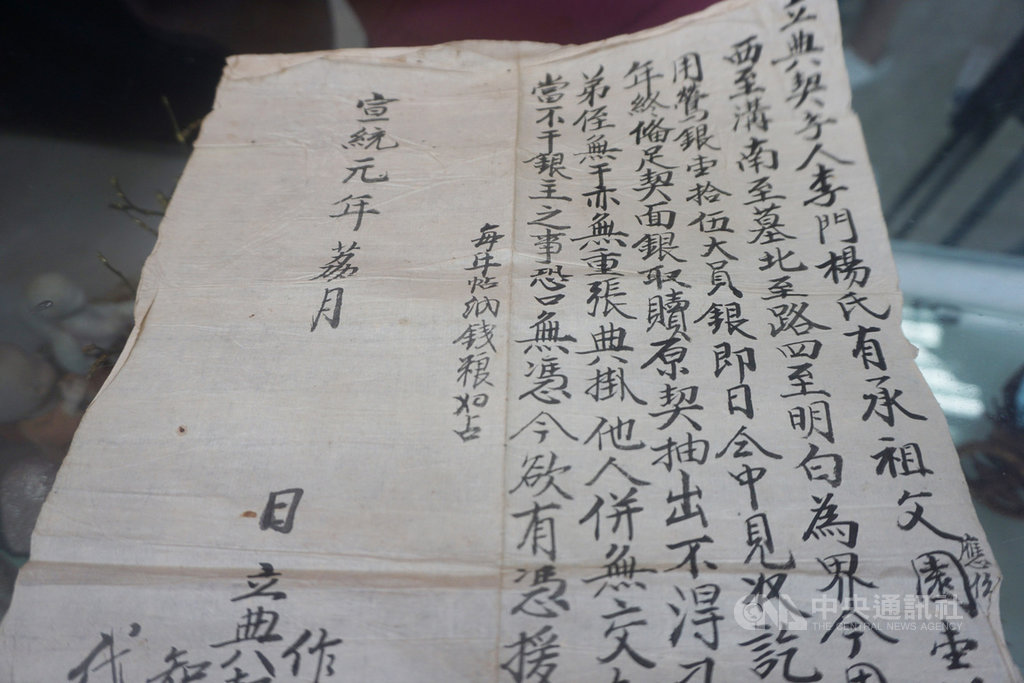 立典契字人李門楊氏有承祖父園壹
應份
西至溝南至墓北至路四至明白為界今因
用鶯銀壹拾伍大員銀即日仝中見收訖
年終備足契面銀取贖原契抽出不得刁
弟侄無干亦無重張典掛他人併無交
當不干銀主之事恐口無憑今欲有憑援
每年貼納錢粮
宣統元年荔月
日立典契
作
知
代
中央通訊社
THE CENTRAL NEWS AGENCY